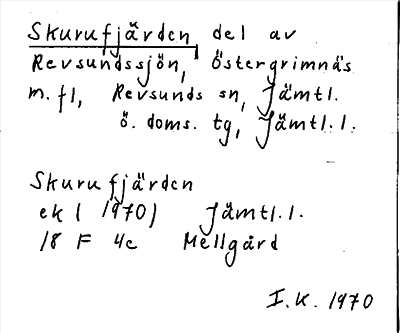 Skurufjärden, del av
Revsundssjön, Östergrimnäs
m.fl, Revsunds sn, Jämtl.
ö. doms. tg, Jämtl. l.
Skurufjärden
ek (1970) Jämtl. l.
18 F 4c Mellgård
I.K. 1970